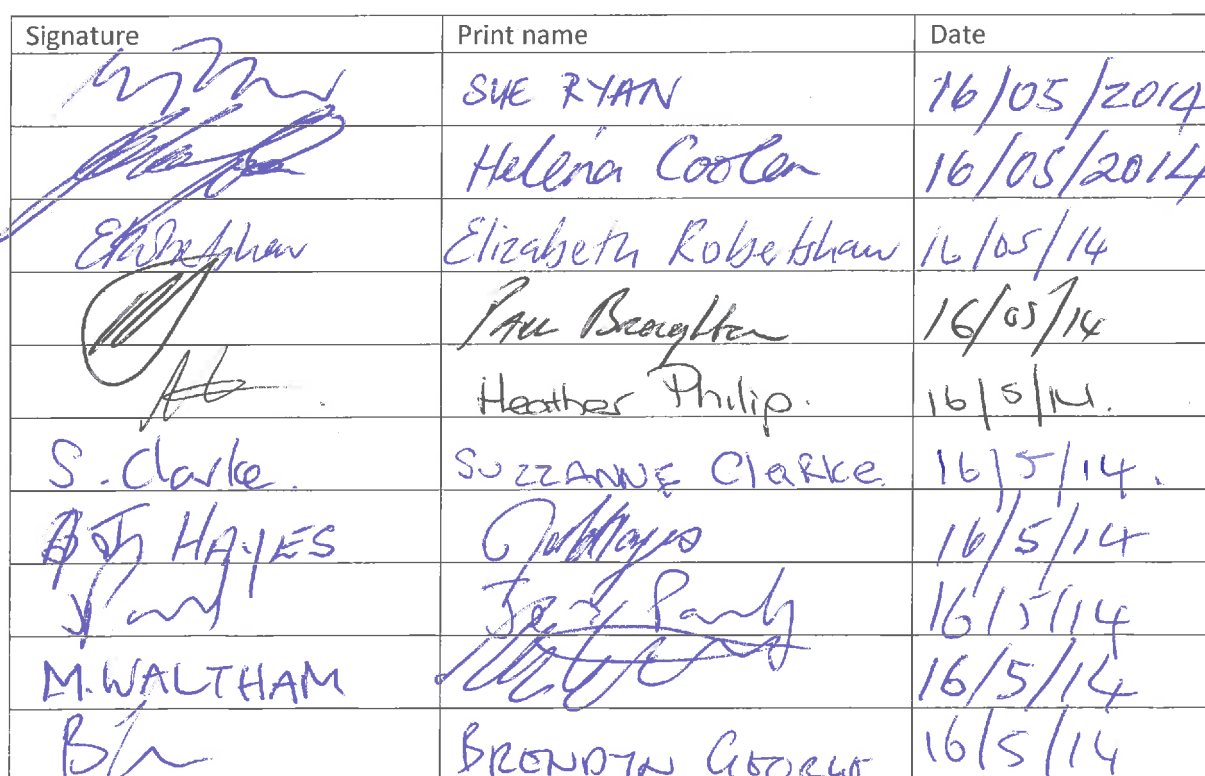 Signature Print name Date
SUE RYAN 16/05/2014
Helena Coolen 16/05/2014
ERobertshaw Elizabeth Robertshaw 16/05/14
Paul Broughton 16/05/14
Heather Philip. 16/5/14.
S. Clarke. SUZZANNE ClaRKe. 16/5/14.
HAYES 16/5/14
16/5/14
M. WALTHAM 16/5/14
BRENDYN GEORGE 16/5/14